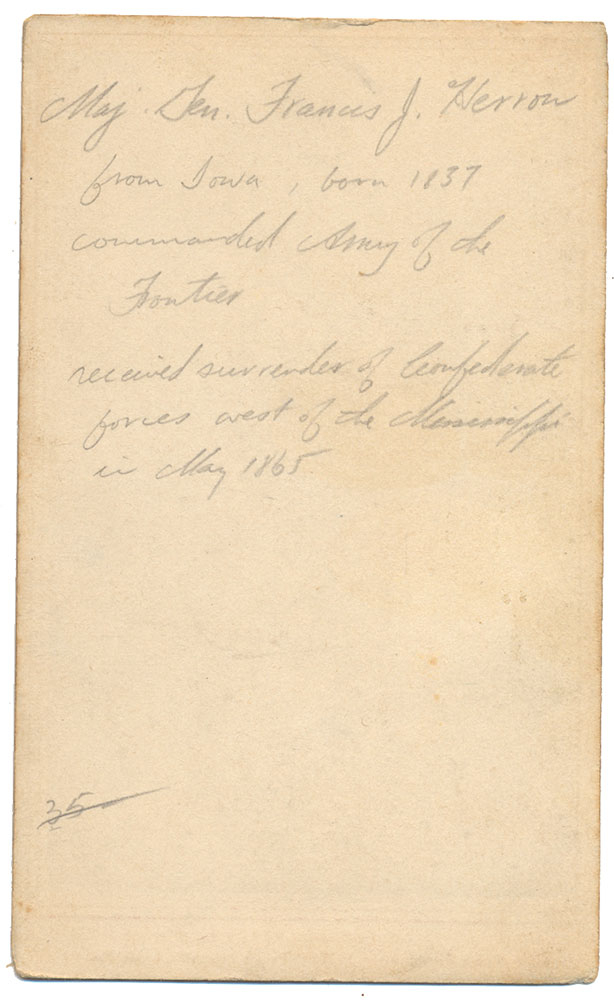 Maj. Gen. Francis J. Herron
from Iowa, born 1837
commanded Army of the
Frontier
received surrender of Confederate
forces west of the Mississippi
in May 1865
35